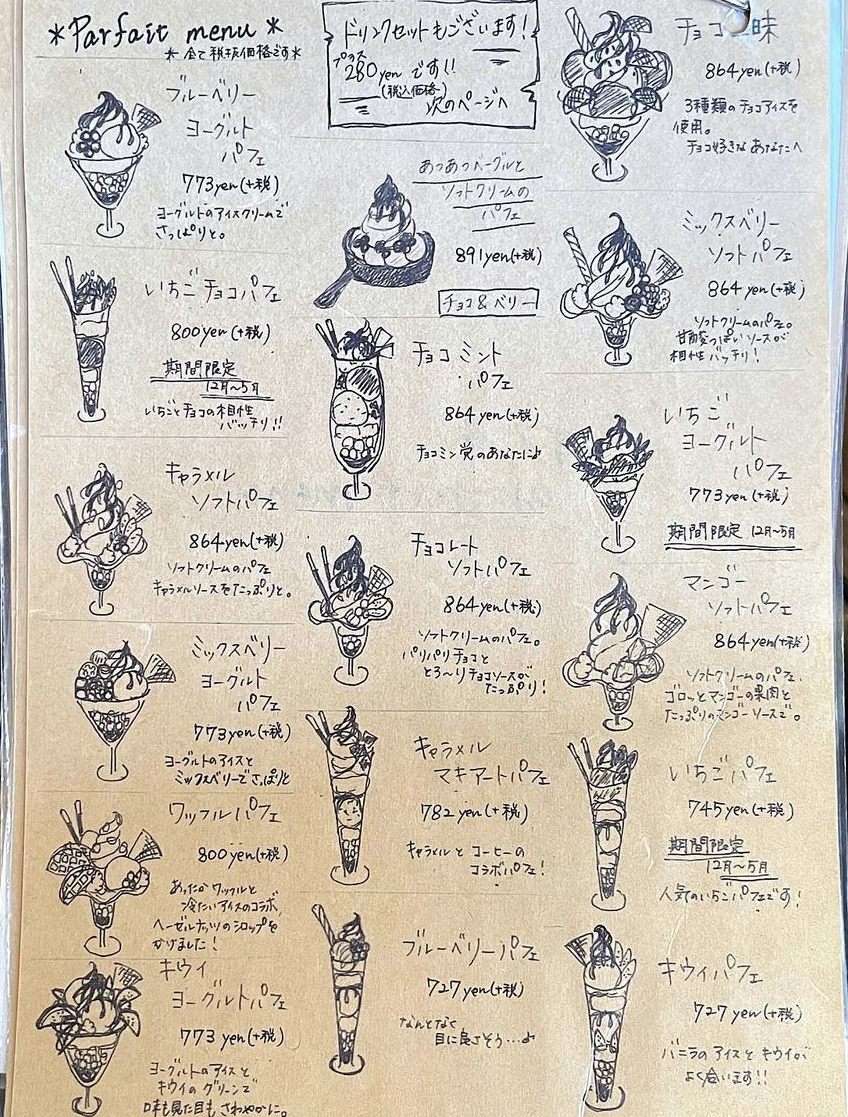 *Parfait menu*
*全て税抜価格です*
ブルーベリー
ヨーグルト
パフェ
773yen(+税)
ヨーグルトのアイスクリームで
さっぱりと。
いちごチョコパフェ
800yen(+税)
期間限定
12月〜5月
いちごとチョコの相性
バッチリ!!
キャラメル
ソフトパフェ
864yen(+税)
ソフトクリームのパフェ
キャラメルソースをたっぷりと。
ミックスベリー
ヨーグルト
パフェ
773yen(+税)
ヨーグルトのアイスと
ミックスベリーでさっぱりと
ワッフルパフェ
800yen(+税)
あったかワッフルと
冷たいアイスのコラボ,
ヘーゼルナッツのシロップを
かけました!
キウイ
ヨーグルトパフェ
773yen(+税)
ヨーグルトのアイスと
キウイのグリーンで
味も見た目もさわやかに。
ドリンクセットもございます!
プラス
280yenです!!
(税込価格)
次のページへ
あつあつベーグルと
ソフトクリームの
パフェ
891yen(+税)
チョコ&ベリー
チョコミント
パフェ
864yen(+税)
チョコミン党のあなたに♪
チョコレート
ソフトパフェ
864yen(+税)
ソフトクリームのパフェ。
パリパリチョコと
とろ〜りチョコソースが
たっぷり!
キャラメル
マキアートパフェ
782yen(+税)
キャラメルとコーヒーの
コラボパフェ!
ブルーベリーパフェ
727yen(+税)
なんとなく
目に良さそう…♪
チョコ 味
864yen(+税)
3種類のチョコアイスを
使用。
チョコ好きなあなたへ
ミックスベリー
ソフトパフェ
864yen(+税)
ソフトクリームのパフェ。
甘酸っぱいソースが
相性バッチリ!
いちご
ヨーグルト
パフェ
773yen(+税)
期間限定 12月〜5月
マンゴー
ソフトパフェ
864yen(+税)
ソフトクリームのパフェ.
ゴロッとマンゴーの果肉と
たっぷりのマンゴーソースで。
いちごパフェ
745yen(+税)
期間限定
12月〜5月
人気のいちごパフェです!
キウイパフェ
727yen(+税)
バニラのアイスとキウイが
よく合います!!